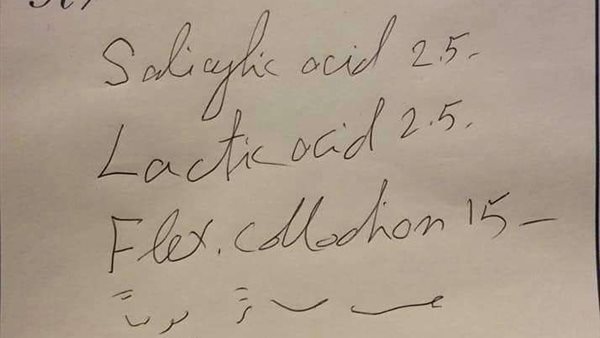 Salicylic acid 2.5-
Lactic acid 2.5.
Flex. collodion 15-